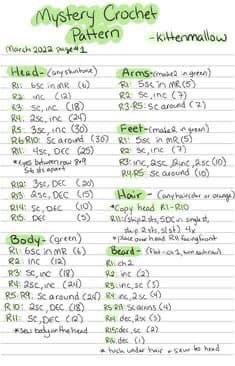 Mystery Crochet
Pattern
-Kittenmallow
March 2022 page #1
Head- (any skintone)
R1: 6sc in MR (6)
R2: inc (12)
R3: sc, inc (18)
R4: 2sc, inc (24)
R5: 3sc, inc (30)
R6-R10: Sc around (30)
R11: 4sc, DEC (25)
*eyes between row 8&9
5 sts apart
R12: 3sc, DEC (20)
R13: 2sc, DEC (15)
R14: Sc, DEC (10)
R15: DEC (5)
Body- (green)
R1: 6sc in MR (6)
R2: inc (12)
R3: sc, inc (18)
R4: 2sc, inc (24)
R5-R9: Sc around (24)
R10: 2sc, DEC (18)
R11: Sc, DEC (12)
*sew body on the head
Arms- (make 2 in green)
R1: 5sc in MR (5)
R2: Sc, inc (7)
R3-R5: Sc around (7)
Feet- (make 2 in green)
R1: 5sc in MR (5)
R2: Sc, inc (7)
R3: inc, 2sc, 2inc, 2sc (10)
R4-R5: Sc around (10)
Hair- (any hair color or orange)
*Copy head R1-R10
R11: (skip 2 sts, 5DC in single st,
skip 2 sts, sl st) 4x
*place over head R11 facing front
Beard- (flat-ch 1, turn each row)
R1: ch2
R2: inc (2)
R3: inc, sc (3)
R4: inc, 2sc (4)
R5-R11: Sc arows (4)
R14: dec, 2sc (3)
R15: dec, sc (2)
R16: dec (1)
*tuck under hair & sew to head